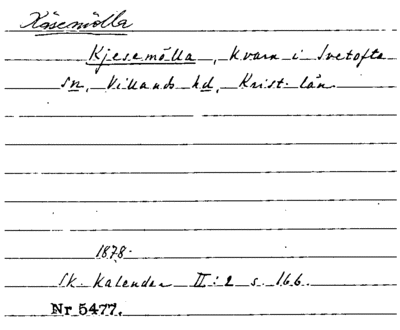 Käsemölla
Kjesemölla, kvarn i Ivetofta
sn, Villands hd, Krist. län.
1878.
Sk. Kalender II:2 s. 166.
Nr 5477.